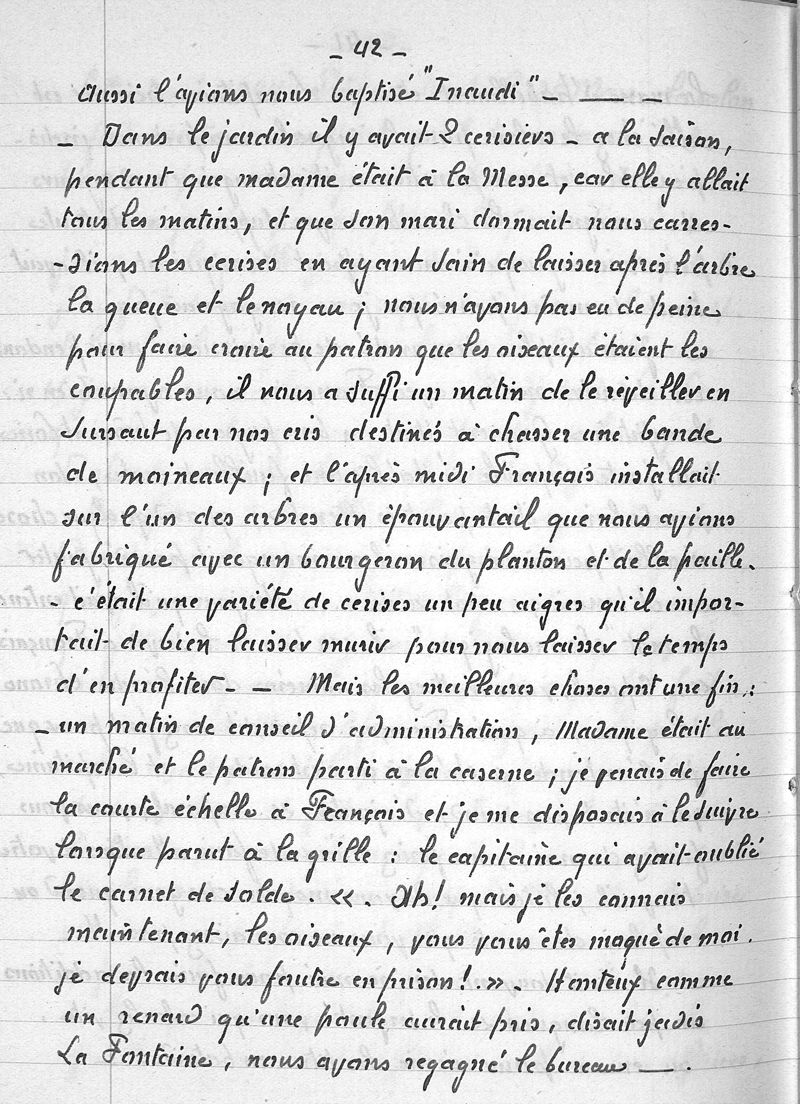 - 42 -
Aussi l'avions nous baptisé "Inaudi" - — -
- Dans le jardin il y avait 2 cerisiers - a la saison,
pendant que madame était à la Messe, car elle y allait
tous les matins, et que son mari dormait nous carres-
-sions les cerises en ayant soin de laisser après l'arbre
la queue et le noyau ; nous n'avons pas eu de peine
pour faire croire au patron que les oiseaux étaient les
coupables, il nous a suffi un matin de le réveiller en
sursaut par nos cris destinés à chasser une bande
de moineaux ; et l'après midi François installait
sur l'un des arbres un épouvantail que nous avions
fabriqué avec un bourgeron du planton et de la paille.
- c'était une variété de cerises un peu aigres qu'il impor-
tait de bien laisser murir pour nous laisser le temps
d'en profiter - - Mais les meilleures choses ont une fin :
- un matin de conseil d'administration, Madame était au
marché et le patron parti à la caserne ; je venais de faire
la courte échelle à François et je me disposais à le suivre
lorsque parut à la grille : le capitaine qui avait oublié
le carnet de solde. «. Ah! mais je les connais
maintenant, les oiseaux, vous vous êtes moqué de moi.
je devrais vous foutre en prison! .». Honteux comme
un renard qu'une poule aurait pris, disait jadis
La Fontaine, nous avons regagné le bureau — .